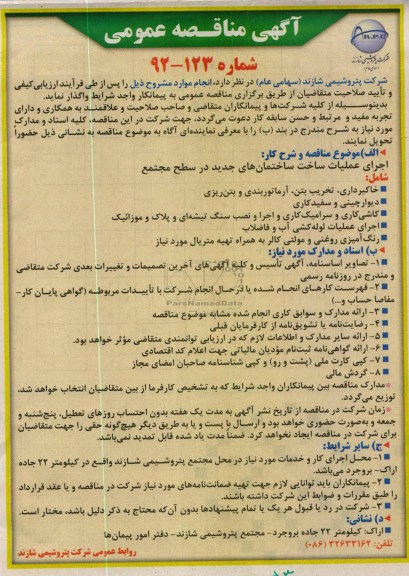 آگهی مناقصه عمومی
شماره ۱۲۳-۹۲
شرکت پتروشیمی شازند (سهامی عام) در نظر دارد، انجام موارد مشروح ذیل را پس از طی فرآیند ارزیابی کیفی
و تأیید صلاحیت متقاضیان از طریق برگزاری مناقصه عمومی به پیمانکار واجد شرایط واگذار نماید.
بدینوسیله از کلیه شرکت‌ها و پیمانکاران متقاضی و صاحب صلاحیت و علاقمند به همکاری و دارای
تجربه مفید و مرتبط و حسن سابقه کار دعوت می‌گردد، جهت شرکت در این مناقصه، کلیه اسناد و مدارک
مورد نیاز به شرح مندرج در بند (ب) را با معرفی نماینده‌ای آگاه به موضوع مناقصه به نشانی ذیل حضوراً
تحویل نمایند.
الف) موضوع مناقصه و شرح کار:
اجرای عملیات ساخت ساختمان‌های جدید در سطح مجتمع
شامل:
خاکبرداری، تخریب بتن، آرماتوربندی و بتن‌ریزی
دیوارچینی و سفیدکاری
کاشی‌کاری و سرامیک‌کاری و اجرا و نصب سنگ تیشه‌ای و پلاک و موزائیک
اجرای عملیات لوله‌کشی آب و فاضلاب
رنگ‌آمیزی روغنی و مولتی کالر به همراه تهیه متریال مورد نیاز
ب) اسناد و مدارک مورد نیاز:
۱- تصاویر اساسنامه، آگهی تأسیس و کلیه آگهی‌های آخرین تصمیمات و تغییرات بعدی شرکت متقاضی
و مندرج در روزنامه رسمی
۲- فهرست کارهای انجام شده یا در حال انجام شرکت با تأییدات مربوطه (گواهی پایان کار-
مفاصا حساب و...)
۳- ارائه مدارک و سوابق کاری انجام شده مشابه موضوع مناقصه
۴- رضایت‌نامه یا تشویق‌نامه از کارفرمایان قبلی
۵- ارائه سایر مدارک و اطلاعات لازم که در ارزیابی توانمندی متقاضی مؤثر خواهد بود.
۶- ارائه گواهی‌نامه ثبت‌نام مؤدیان مالیاتی جهت اعلام کد اقتصادی
۷- کپی کارت ملی (پشت و رو) و کپی شناسنامه صاحبان امضای مجاز
۸- گردش مالی
مدارک مناقصه بین پیمانکاران واجد شرایط که به تشخیص کارفرما از بین متقاضیان انتخاب خواهد شد،
توزیع می‌گردد.
زمان شرکت در مناقصه از تاریخ نشر آگهی به مدت یک هفته بدون احتساب روزهای تعطیل، پنج‌شنبه و
جمعه و به‌صورت حضوری خواهد بود و ارسال با پست و یا به طریق دیگر هیچ‌گونه حقی را جهت متقاضیان
برای شرکت در مناقصه ایجاد نخواهد کرد. ضمناً مدت یاد شده قابل تمدید نمی‌باشد.
ج) سایر شرایط:
۱- محل اجرای کار و خدمات مورد نیاز در محل مجتمع پتروشیمی شازند واقع در کیلومتر ۲۲ جاده
اراک- بروجرد می‌باشد.
۲- پیمانکاران باید توانایی لازم جهت تهیه ضمانت‌نامه‌های مورد نیاز شرکت در مناقصه و یا عقد قرارداد
را طبق مقررات و ضوابط این شرکت داشته باشند.
۳- شرکت در رد یا قبول هر یک یا تمام پیشنهادها بدون آن‌که محتاج به ذکر دلیل باشد، مختار است.
د) نشانی:
اراک: کیلومتر ۲۲ جاده بروجرد- مجتمع پتروشیمی شازند- دفتر امور پیمان‌ها
تلفن: ۳۲۶۳۳۱۶۲ (۰۸۶)
روابط عمومی شرکت پتروشیمی شازند